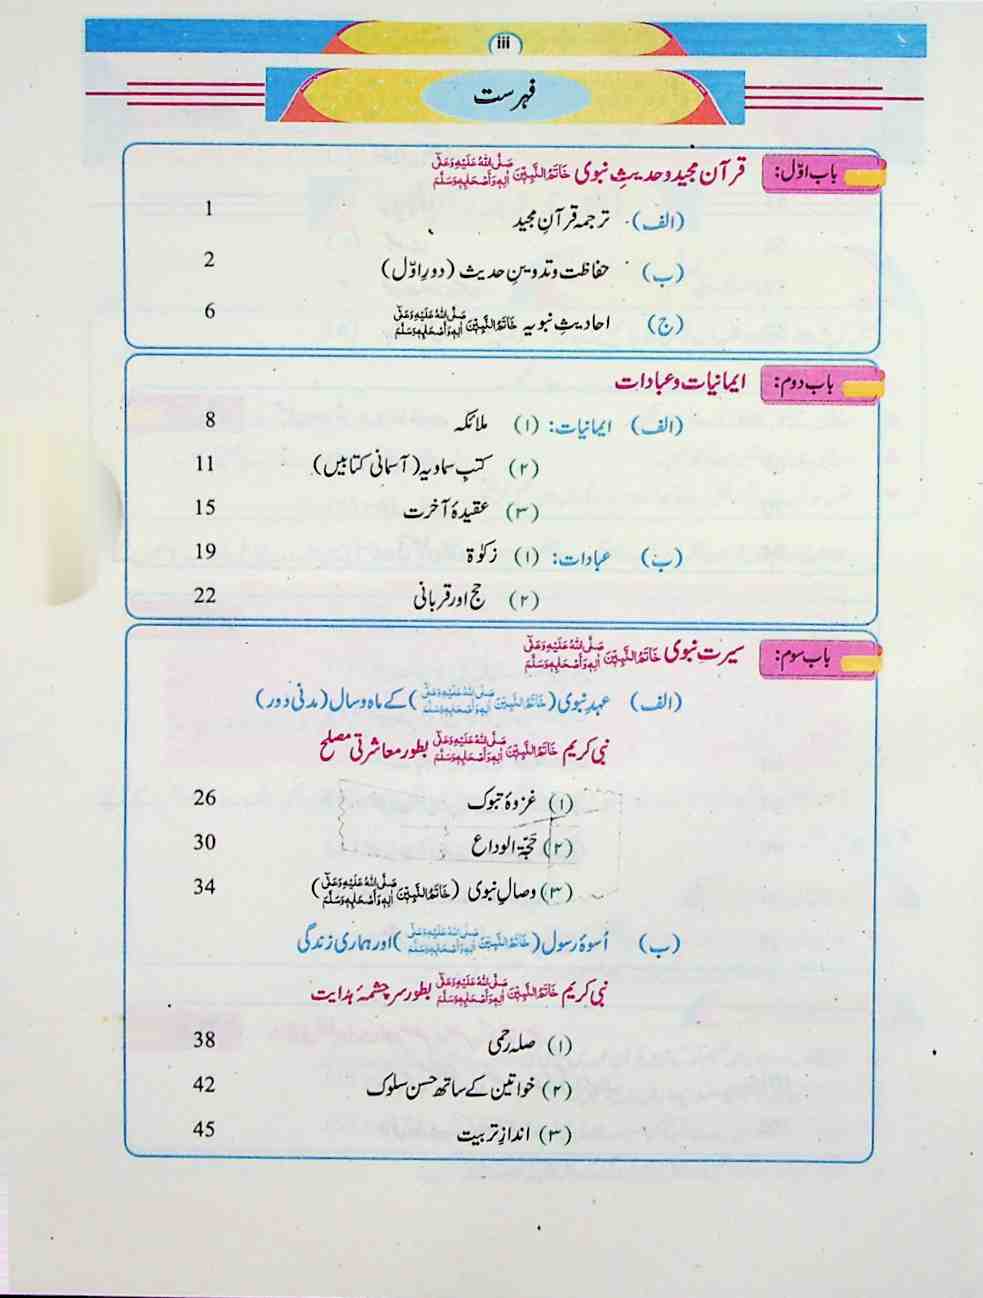 iii
فہرست
باب اوّل: قرآن مجید و حدیثِ نبوی خَاتَمُ النَّبِيّٖنَ صَلَّى اللّٰهُ عَلَيْهِ وَعَلٰٓى اٰلِهٖ وَاَصْحَابِهٖ وَسَلَّمَ
(الف) ترجمہ قرآنِ مجید 1
(ب) حفاظت و تدوینِ حدیث (دورِ اوّل) 2
(ج) احادیثِ نبویہ خَاتَمُ النَّبِيّٖنَ صَلَّى اللّٰهُ عَلَيْهِ وَعَلٰٓى اٰلِهٖ وَاَصْحَابِهٖ وَسَلَّمَ 6
باب دوم: ایمانیات و عبادات
(الف) ایمانیات: (۱) ملائکہ 8
(۲) کتبِ سماویہ (آسمانی کتابیں) 11
(۳) عقیدۂ آخرت 15
(ب) عبادات: (۱) زکوٰۃ 19
(۲) حج اور قربانی 22
باب سوم: سیرت نبوی خَاتَمُ النَّبِيّٖنَ صَلَّى اللّٰهُ عَلَيْهِ وَعَلٰٓى اٰلِهٖ وَاَصْحَابِهٖ وَسَلَّمَ
(الف) عہدِ نبوی (خَاتَمُ النَّبِيّٖنَ صَلَّى اللّٰهُ عَلَيْهِ وَعَلٰٓى اٰلِهٖ وَاَصْحَابِهٖ وَسَلَّمَ) کے ماہ و سال (مدنی دَور)
نبی کریم خَاتَمُ النَّبِيّٖنَ صَلَّى اللّٰهُ عَلَيْهِ وَعَلٰٓى اٰلِهٖ وَاَصْحَابِهٖ وَسَلَّمَ بطور معاشرتی مصلح
(۱) غزوۂ تبوک 26
(۲) حَجّۃ الوداع 30
(۳) وصالِ نبوی (خَاتَمُ النَّبِيّٖنَ صَلَّى اللّٰهُ عَلَيْهِ وَعَلٰٓى اٰلِهٖ وَاَصْحَابِهٖ وَسَلَّمَ) 34
(ب) اُسوۂ رسول (خَاتَمُ النَّبِيّٖنَ صَلَّى اللّٰهُ عَلَيْهِ وَعَلٰٓى اٰلِهٖ وَاَصْحَابِهٖ وَسَلَّمَ) اور ہماری زندگی
نبی کریم خَاتَمُ النَّبِيّٖنَ صَلَّى اللّٰهُ عَلَيْهِ وَعَلٰٓى اٰلِهٖ وَاَصْحَابِهٖ وَسَلَّمَ بطور سرچشمۂ ہدایت
(۱) صلہ رحمی 38
(۲) خواتین کے ساتھ حسن سلوک 42
(۳) اندازِ تربیت 45